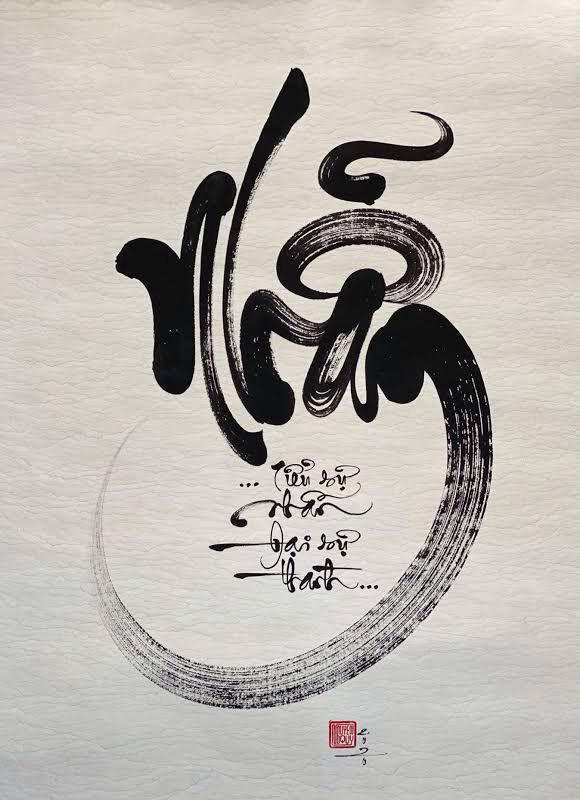 Nhẫn
... Tiểu sự
Nhẫn
Đại sự
thành...